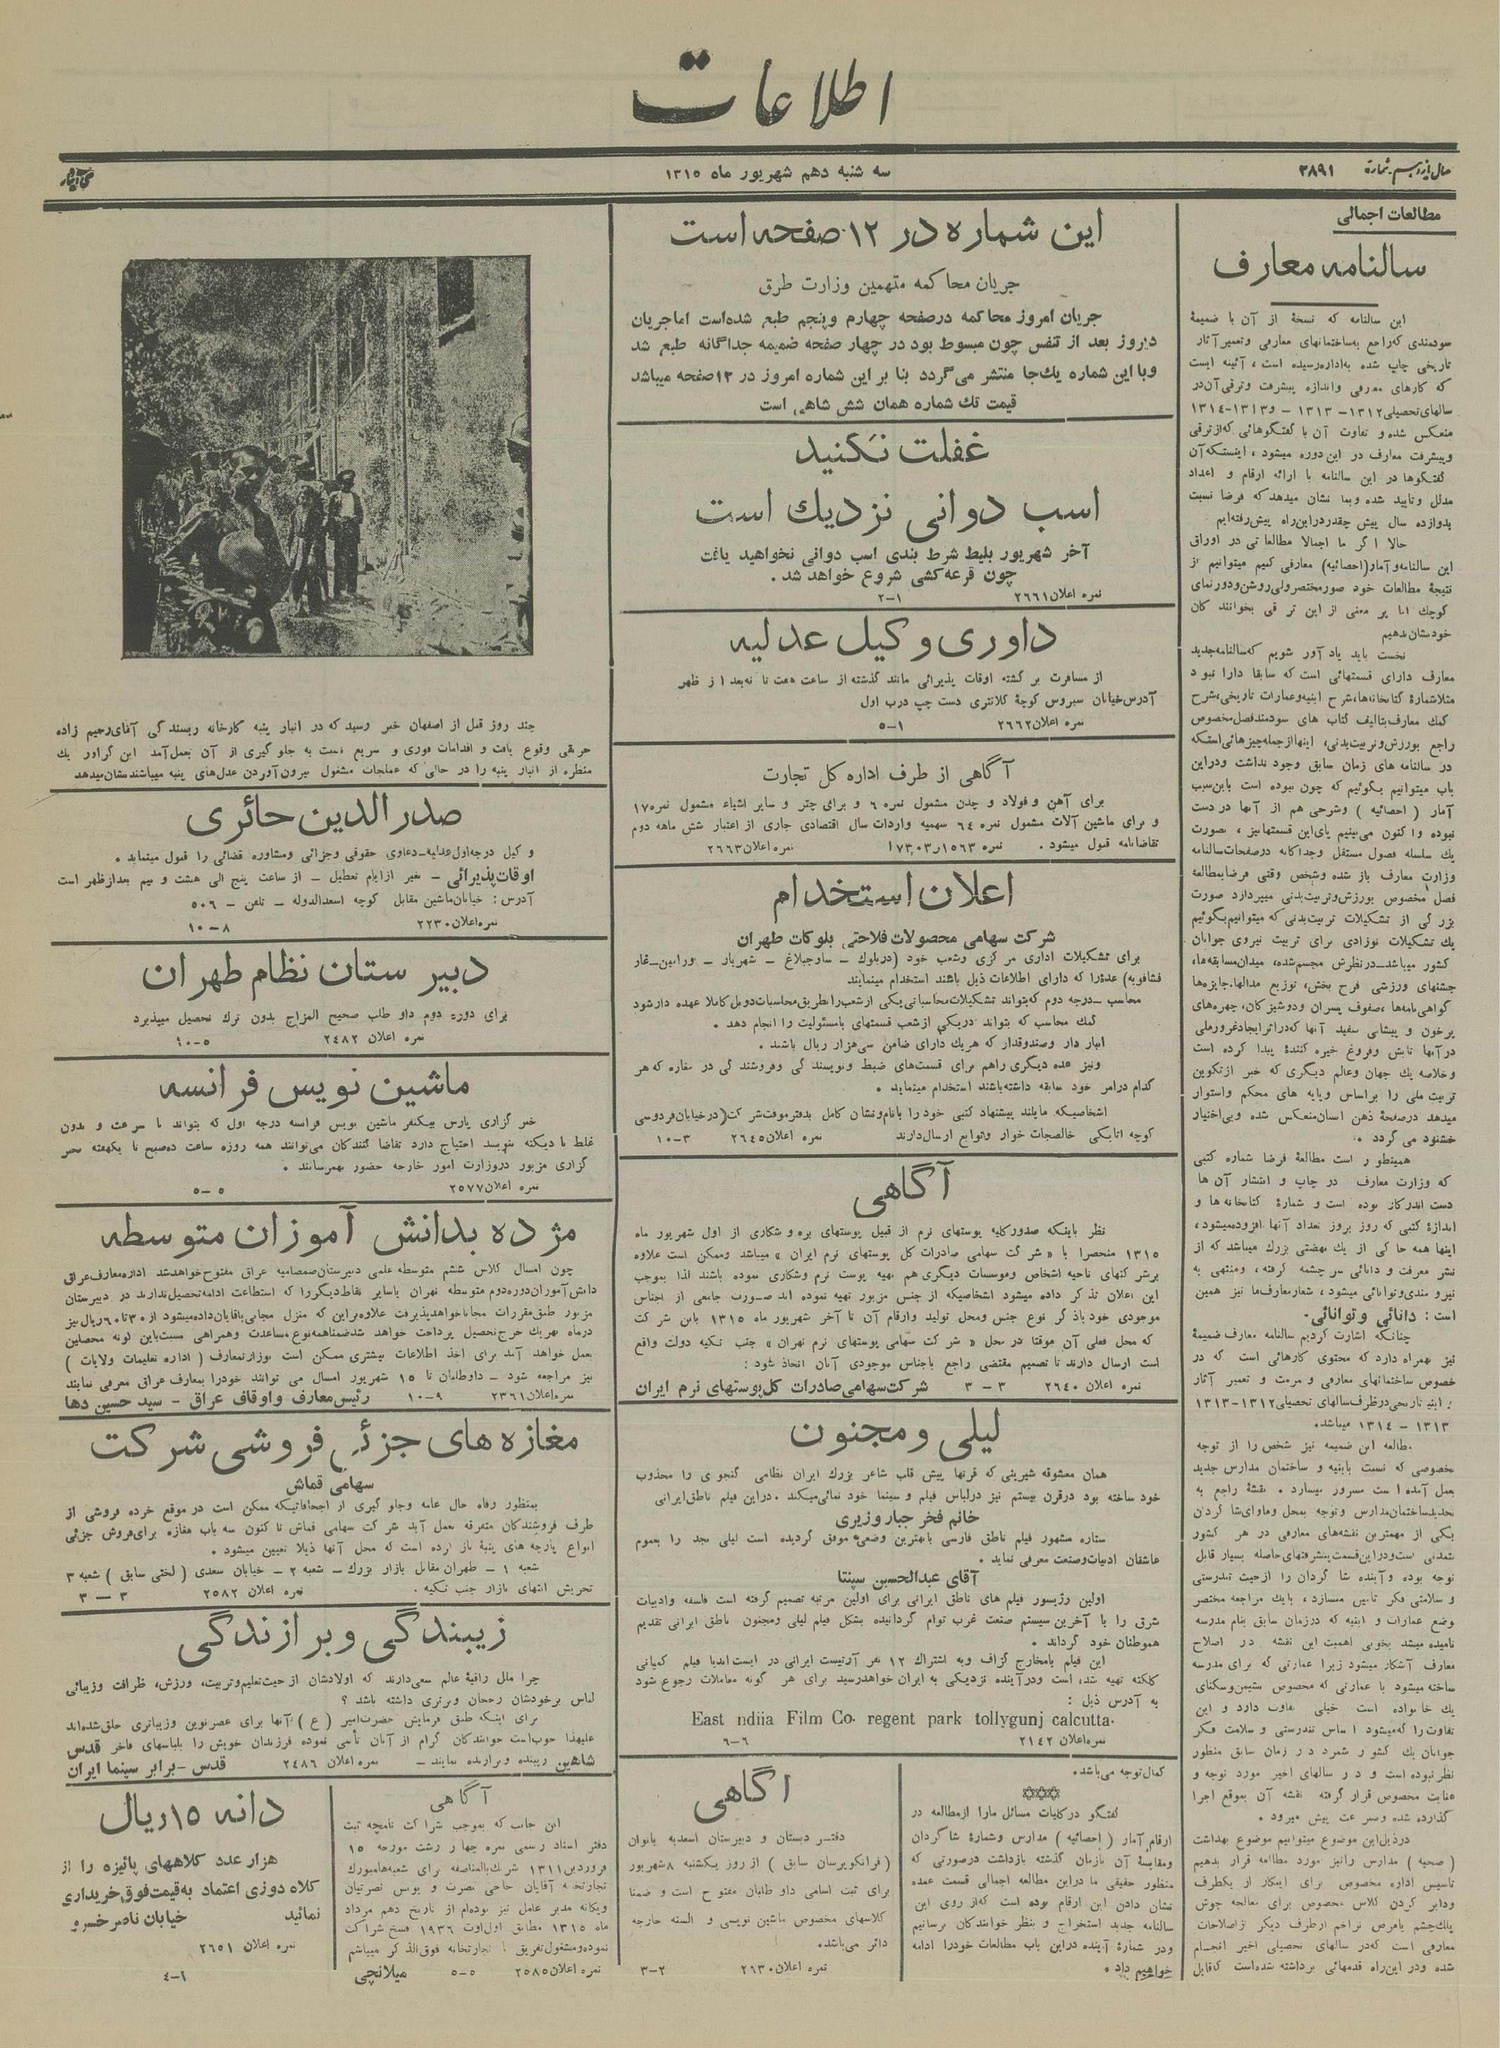 اطلاعات
سال یازدهم شماره ۲۸۹۱
سه شنبه دهم شهریور ماه ۱۳۱۵
مطالعات اجمالی
سالنامه معارف
این سالنامه که نسخهٔ از آن با ضمیمهٔ
سودمندی که راجع بساختمانهای معارفی و تعمیر آثار
تاریخی چاپ شده به اداره رسیده است، آئینه ایست
که کارهای معارفی و اندازه پیشرفت و ترقی آن در
سالهای تحصیلی ۱۳۱۲-۱۳۱۳ - و ۱۳۱۳-۱۳۱۴
منعکس شده و تفاوت آن با گفتگوهائی که از ترقی
و پیشرفت معارف در این دوره میشود، اینستکه آن
گفتگوها در این سالنامه با ارائه ارقام و اعداد
مدلل و تایید شده و بما نشان میدهد که فرضا نسبت
بدوازده سال پیش چقدر در این راه پیش رفته ایم
حالا اگر ما اجمالا مطالعاتی در اوراق
این سالنامه و آمار (احصائیه) معارفی کنیم میتوانیم از
نتیجهٔ مطالعات خود صور مختصر ولی روشن و دورنمای
کوچک اما پر معنی از این ترقی بخوانندگان
خودمان بدهیم
نخست باید یادآور شویم که سالنامه جدید
معارف دارای قسمتهائی است که سابقا دارا نبود
مثلا شمارهٔ کتابخانه ها، شرح ابنیه و عمارات تاریخی، شرح
کمک معارف بتالیف کتاب های سودمند فصل مخصوص
راجع بورزش و تربیت بدنی، اینها از جمله چیزهائی استکه
در سالنامه های زمان سابق وجود نداشت و در این
باب میتوانیم بگوئیم که چون نبوده است باین سبب
آمار (احصائیه) و شرحی هم از آنها در دست
نبوده و اکنون می بینیم پای این قسمتها نیز، بصورت
یک سلسله فصول مستقل و جداگانه در صفحات سالنامه
وزارت معارف باز شده و شخص وقتی فرضا بمطالعه
فصل مخصوص بورزش و تربیت بدنی میپردازد صورت
بزرگی از تشکیلات تربیت بدنی که میتوانیم بگوئیم
یک تشکیلات نوزادی برای تربیت نیروی جوانان
کشور میباشد - در نظرش مجسم شده، میدان مسابقه ها،
جشنهای ورزشی فرح بخش، توزیع مدالها، جایزه ها
گواهی نامه ها، صفوف پسران و دوشیزگان، چهره های
پرخون و پیشانی سفید آنها که در اثر ایجاد غرور ملی
در آنها تابش و فروغ خیره کنندهٔ پیدا کرده است
و خلاصه یک جهان و عالم دیگری که خبر از تکوین
تربیت ملی را بر اساس و پایه های محکم و استوار
میدهد در صفحهٔ ذهن انسان منعکس شده و بی اختیار
خشنود می گردد.
همینطور است مطالعهٔ فرضا شماره کتبی
که وزارت معارف در چاپ و انتشار آن ها
دست اندرکار بوده است و شمارهٔ کتابخانه ها و
اندازهٔ کتبی که روز بروز بتعداد آنها افزوده میشود،
اینها همه حاکی از یک نهضتی بزرگ میباشد که از
نشر معرفت و دانائی سرچشمه گرفته، و منتهی به
نیرومندی و توانائی میشود، شعار معارف ما نیز همین
است: دانائی و توانائی.
چنانکه اشارت کردیم سالنامه معارف ضمیمهٔ
نیز بهمراه دارد که محتوی کارهائی است که در
خصوص ساختمانهای معارفی و مرمت و تعمیر آثار
و ابنیه تاریخی در ظرف سالهای تحصیلی ۱۳۱۲-۱۳۱۳
۱۳۱۳ - ۱۳۱۴ میباشد.
مطالعه این ضمیمه نیز شخص را از توجه
مخصوصی که نسبت بابنیه و ساختمان مدارس جدید
بعمل آمده است مسرور میسازد. نقشهٔ راجع به
تجدید ساختمان مدارس و توجه بمحل و ماوای شاگردان
یکی از مهمترین نقشه های معارفی در هر کشور
متمدنی است و در این قسمت پیشرفتهای حاصله بسیار قابل
توجه بوده و آینده شاگردان را از حیث تندرستی
و سلامتی فکر تامین میسازد، با یک مراجعه مختصر
وضع عمارات و ابنیه که در زمان سابق بنام مدرسه
نامیده میشد بخوبی اهمیت این نقشه در اصلاح
معارف آشکار میشود زیرا عمارتی که برای مدرسه
ساخته میشود با عمارتی که مخصوص نشیمن و سکنای
یک خانواده است خیلی تفاوت دارد و این
تفاوت را که میشود اساس تندرستی و سلامت فکر
جوانان یک کشور شمرد در زمان سابق منظور
نظر نبوده است و در سالهای اخیر مورد توجه و
عنایت مخصوص قرار گرفته نقشه آن بموقع اجرا
گذارده شده و سرعت پیش میرود.
در ذیل این موضوع میتوانیم موضوع بهداشت
(صحیه) مدارس را نیز مورد مطالعه قرار بدهیم
تاسیس اداره مخصوص برای اینکار از یکطرف
و دایر کردن کلاس مخصوص برای معالجه جوش
پلک چشم یا مرض تراخم از طرف دیگر از اصلاحات
معارفی است که در سالهای تحصیلی اخیر انجام
شده و در این راه قدمهائی برداشته شده است که قابل
کمال توجه می باشد.
گفتگو در کلیات مسائل ما را از مطالعه در
ارقام آمار (احصائیه) مدارس و شمارهٔ شاگردان
و مقایسهٔ آن با زمان گذشته بازداشت در صورتی که
منظور حقیقی ما در این مطالعه اجمالی قسمت عمده
نشان دادن این ارقام بوده است که از روی این
سالنامه جدید استخراج و بنظر خوانندگان برسانیم
و در شمارهٔ آینده در این باب مطالعات خود را ادامه
خواهیم داد.
این شماره در ۱۲ صفحه است
جریان محاکمه متهمین وزارت طرق
جریان امروز محاکمه در صفحه چهارم و پنجم طبع شده است اما جریان
دیروز بعد از تنفس چون مبسوط بود در چهار صفحه ضمیمه جداگانه طبع شد
و با این شماره یک جا منتشر می گردد بنا بر این شماره امروز در ۱۲ صفحه میباشد
قیمت تک شماره همان شش شاهی است
غفلت نکنید
اسب دوانی نزدیك است
آخر شهریور بلیط شرط بندی اسب دوانی نخواهید یافت
چون قرعه کشی شروع خواهد شد.
نمره اعلان ۲۶۶۱ ۲-۱
داوری وکیل عدلیه
از مسافرت برگشته اوقات پذیرائی مانند گذشته از ساعت هفت تا نه بعد از ظهر
آدرس خیابان سیروس کوچهٔ کلانتری دست چپ درب اول
نمره اعلان ۲۶۶۲ ۵-۱
آگاهی از طرف اداره کل تجارت
برای آهن و فولاد و چدن مشمول نمره ۶ و برای چتر و سایر اشیاء مشمول نمره ۱۷
و برای ماشین آلات مشمول نمره ۶۴ سهمیه واردات سال اقتصادی جاری از اعتبار شش ماهه دوم
تقاضانامه قبول میشود. نمره ۱۷۳،۰۳،۱۵۶۳ نمره اعلان ۲۶۶۳
اعلان استخدام
شرکت سهامی محصولات فلاحتی بلوکات طهران
برای تشکیلات اداری مرکزی و شعب خود (در بلوک - ساوجبلاغ - شهریار - ورامین - غار
فشافویه) عدهٔ را که دارای اطلاعات ذیل باشند استخدام مینمایند
محاسب - درجه دوم که بتواند تشکیلات محاسباتی یکی از شعب را بطریق محاسبات دوبل کاملا عهده دار شود
کمک محاسب که بتواند در یکی از شعب قسمتهای بامسئولیت را انجام دهد.
انبار دار و صندوقدار که هر یک دارای ضامن سی هزار ریال باشند.
و نیز عده دیگری را هم برای قسمت های ضبط و نویسندگی و فروشندگی در مغازه که هر
کدام در امر خود سابقه داشته باشند استخدام مینماید.
اشخاصیکه مایلند پیشنهاد کتبی خود را با نام و نشان کامل بدفتر موقت شرکت (در خیابان فردوسی
کوچه اتابکی خالصجات خوار و توابع ارسال دارند نمره اعلان ۲۶۴۵ ۱۰-۳
آگاهی
نظر باینکه صدور کلیه پوستهای نرم از قبیل پوستهای بره و شکاری از اول شهریور ماه
۱۳۱۵ منحصرا با «شرکت سهامی صادرات کل پوستهای نرم ایران» میباشد و ممکن است علاوه
بر شرکتهای ناحیه اشخاص و موسسات دیگری هم تهیه پوست نرم و شکاری نموده باشند لذا بموجب
این اعلان تذکر داده میشود اشخاصیکه از جنس مزبور تهیه نموده اند صورت جامعی از اجناس
موجودی خود با ذکر نوع جنس و محل تولید و ارقام آن تا آخر شهریور ماه ۱۳۱۵ باین شرکت
که محل فعلی آن موقتا در محل «شرکت سهامی پوستهای نرم تهران» جنب تکیه دولت واقع
است ارسال دارند تا تصمیم مقتضی راجع باجناس موجودی آنان اتخاذ شود:
نمره اعلان ۲۶۴۰ ۳ - ۳ شرکت سهامی صادرات کل پوستهای نرم ایران
لیلی و مجنون
همان معشوقه شیرینی که قرنها پیش قلب شاعر بزرگ ایران نظامی گنجوی را مجذوب
خود ساخته بود در قرن بیستم نیز در لباس فیلم و سینما خود نمائی میکند. در این فیلم ناطق ایرانی
خانم فخر جبار وزیری
ستاره مشهور فیلم ناطق فارسی با بهترین وضعی موفق گردیده است لیلی نجد را بعموم
عاشقان ادبیات و صنعت معرفی نماید.
آقای عبدالحسین سپنتا
اولین رژیسور فیلم های ناطق ایرانی برای اولین مرتبه تصمیم گرفته است فلسفه و ادبیات
شرق را با آخرین سیستم صنعت غرب توام گردانیده بشکل فیلم لیلی و مجنون ناطق ایرانی تقدیم
هموطنان خود گرداند.
این فیلم با مخارج گزاف و به اشتراك ۱۲ نفر آرتیست ایرانی در ایست اندیا فیلم کمپانی
کلکته تهیه شده است و در آینده نزدیکی به ایران خواهد رسید برای هر گونه معاملات رجوع شود
به آدرس ذیل:
East ndiia Film Co. regent park tollygunj calcutta.
نمره اعلان ۲۱۴۲ ۶-۶
آگاهی
دفتر دبستان و دبیرستان اسعدیه بانوان
(فرانکوپرسان سابق) از روز یکشنبه ۸ شهریور
برای ثبت اسامی داوطلبان مفتوح است و ضمنا
کلاسهای مخصوص ماشین نویسی و السنه خارجه
دائر می باشد.
نمره اعلان ۲۶۳۰ ۳-۲
چند روز قبل از اصفهان خبر رسید که در انبار پنبه کارخانه ریسندگی آقای رحیم زاده
حریقی وقوع یافت و اقدامات فوری و سریع نسبت به جلوگیری از آن بعمل آمد این گراور یک
منظره از انبار پنبه را در حالی که عملجات مشغول بیرون آوردن عدل های پنبه میباشند نشان میدهد
صدرالدین حائری
وکیل درجه اول عدلیه - دعاوی حقوقی و جزائی و مشاوره قضائی را قبول مینماید.
اوقات پذیرائی - بغیر از ایام تعطیل - از ساعت پنج الی هشت و نیم بعد از ظهر است
آدرس: خیابان ماشین مقابل کوچه اسعدالدوله - تلفن - ۵۰۶
نمره اعلان ۲۲۳۰ ۱۰-۸
دبیرستان نظام طهران
برای دوره دوم داوطلب صحیح المزاج بدون ترک تحصیل میپذیرد
نمره اعلان ۲۴۸۲ ۱۰-۵
ماشین نویس فرانسه
خبرگزاری پارس بیکنفر ماشین نویس فرانسه درجه اول که بتواند با سرعت و بدون
غلط با دیکته بنویسد احتیاج دارد تقاضا کنندگان می توانند همه روزه ساعت ده صبح تا یکهفته بخبر
گزاری مزبور در وزارت امور خارجه حضور بهمرسانند.
نمره اعلان ۲۵۷۷ ۵-۵
مژده بدانش آموزان متوسطه
چون امسال کلاس ششم متوسطه علمی دبیرستان صمصامیه عراق مفتوح خواهد شد اداره معارف عراق
دانش آموزان دوره دوم متوسطه تهران یا سایر نقاط دیگر را که استطاعت ادامه تحصیل ندارند در دبیرستان
مزبور طبق مقررات مجانا خواهد پذیرفت علاوه بر این که منزل مجانی باقایان داده میشود از ۳۰ تا ۶۰ ریال نیز
در ماه بهر یک خرج تحصیل پرداخت خواهد شد ضمنا همه نوع مساعدت و همراهی نسبت باین گونه محصلین
بعمل خواهد آمد برای اخذ اطلاعات بیشتری ممکن است بوزارت معارف (اداره تعلیمات ولایات)
نیز مراجعه شود - داوطلبان تا ۱۵ شهریور امسال می توانند خود را بمعارف عراق معرفی نمایند
نمره اعلان ۲۳۶۱ ۱۰-۹ رئیس معارف و اوقاف عراق - سید حسین دها
مغازه های جزئی فروشی شرکت
سهامی قماش
بمنظور رفاه حال عامه و جلوگیری از اجحافاتیکه ممکن است در موقع خرده فروشی از
طرف فروشندگان متفرقه بعمل آید شرکت سهامی قماش تا کنون سه باب مغازه برای فروش جزئی
انواع پارچه های پنبه باز کرده است که محل آنها ذیلا تعیین میشود.
شعبه ۱ - طهران مقابل بازار بزرگ - شعبه ۲ - خیابان سعدی (لختی سابق) شعبه ۳
تجریش انتهای بازار جنب تکیه. نمره اعلان ۲۵۸۲ ۳ - ۳
زیبندگی و برازندگی
چرا ملل راقیهٔ عالم سعی دارند که اولادشان از حیث تعلیم و تربیت، ورزش، ظرافت و زیبائی
لباس بر خودشان رجحان و برتری داشته باشد؟
برای اینکه طبق فرمایش حضرت امیر (ع) آنها برای عصر نوین و زیباتری خلق شده اند
علیهذا خوب است خوانندگان گرام از آنان تأسی نموده فرزندان خویش را بلباسهای فاخر قدس
شاهین زیبنده و برازنده نمایند - نمره اعلان ۲۴۸۶ قدس - برابر سینما ایران
آگاهی
این جانب که بموجب شراکت نامچه ثبت
دفتر اسناد رسمی نمره چهار رشت مورخه ۱۵
فروردین ۱۳۱۱ شریک بالمناصفه برای شعبه هامبورگ
تجارتخانه آقایان حاجی نصرت و یونس نصرتیان
و یگانه مدیر عامل نیز بوده ام از تاریخ دهم مرداد
ماه ۱۳۱۵ مطابق اول اوت ۱۹۳۶ فسخ شراکت
نموده و مشغول تفریق با تجارتخانه فوق الذکر میباشم
نمره اعلان ۲۵۸۵ ۵-۵ میلانچی
دانه ۱۵ ریال
هزار عدد کلاههای پائیزه را از
کلاه دوزی اعتماد به قیمت فوق خریداری
نمائید خیابان ناصر خسرو
نمره اعلان ۲۶۵۱
۴-۱